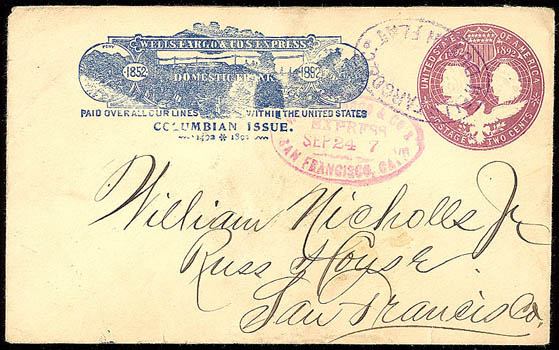 WELLS FARGO & CO'S EXPRESS
1852 1892
DOMESTIC FRANK
PAID OVER ALL OUR LINES WITHIN THE UNITED STATES
COLUMBIAN ISSUE.
1492 1892
UNITED STATES OF AMERICA
1892
POSTAGE TWO CENTS
& CO'S
EXPRESS
SEP 24 7
SAN FRANCISCO, CAL
William Nicholls Jr
Russ House
San Francisco